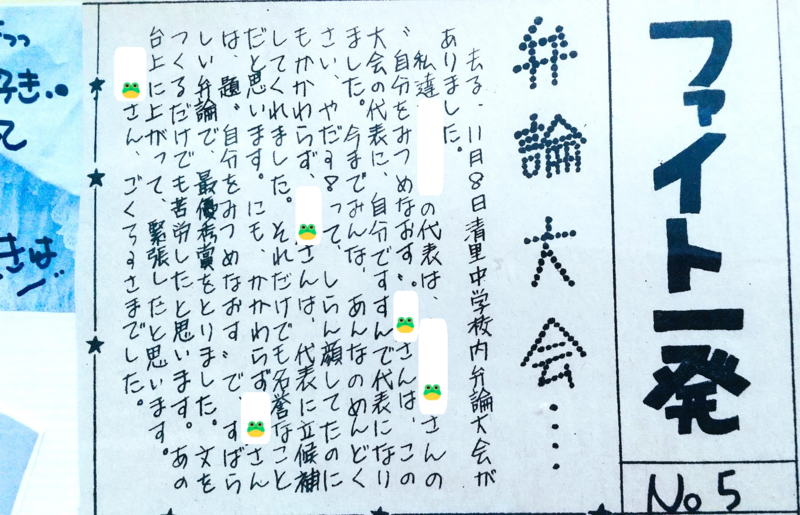 ファイト一発
No 5
弁論大会…‥
去る、11月8日清里中学校内弁論大会が
ありました。
私達の代表は、さんの
〝自分をみつめなおす〟。さんは、この
大会の代表に、自分ですすんで代表になり
ました。今までみんな、あんなのめんどく
さい、やだョって、しらん顔してたのに
もかかわらず、さんは、代表に立候補
してくれました。それだけでも名誉なこと
だと思います。にも、かかわらず、さん
は、題〝自分をみつめなおす〟で、すばら
しい弁論で、最優秀賞をとりました。文を
つくるだけでも苦労したと思います。あの
台上に上がって、緊張したと思います。
さん、ごくろうさまでした。
好き。
て
きは